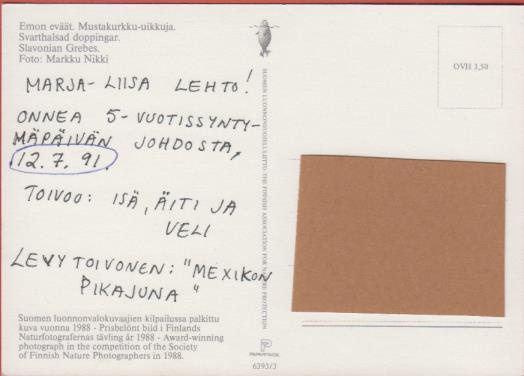 Emon eväät. Mustakurkku-uikkuja.
Svarthalsad doppingar.
Slavonian Grebes.
Foto: Markku Nikki
MARJA-LIISA LEHTO!
ONNEA 5-VUOTISSYNTY-
MÄPÄIVÄN JOHDOSTA,
12.7.91.
TOIVOO: ISÄ, ÄITI JA
VELI
LEVYTOIVONEN: "MEXIKON
PIKAJUNA"
Suomen luonnonvalokuvaajien kilpailussa palkittu
kuva vuonna 1988 - Prisbelönt bild i Finlands
Naturfotografernas tävling år 1988 - Award-winning
photograph in the competition of the Society
of Finnish Nature Photographers in 1988.
SUOMEN LUONNONSUOJELULIITTO THE FINNISH ASSOCIATION FOR NATURE PROTECTION
PAPERITUOTE
6393/3
OVH 3,50